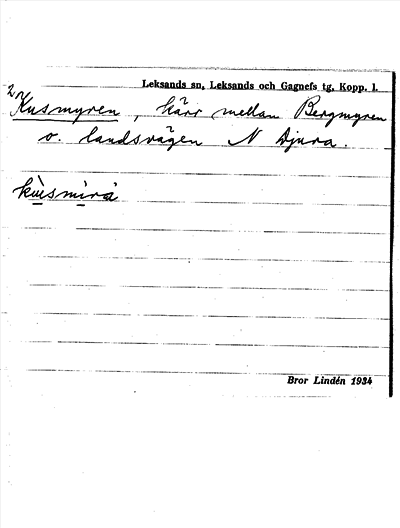 Leksands sn, Leksands och Gagnefs tg, Kopp. l.
2 Kusmyren, kärr mellan Bergmyren
o. landsvägen N Djura.
Bror Lindén 1934